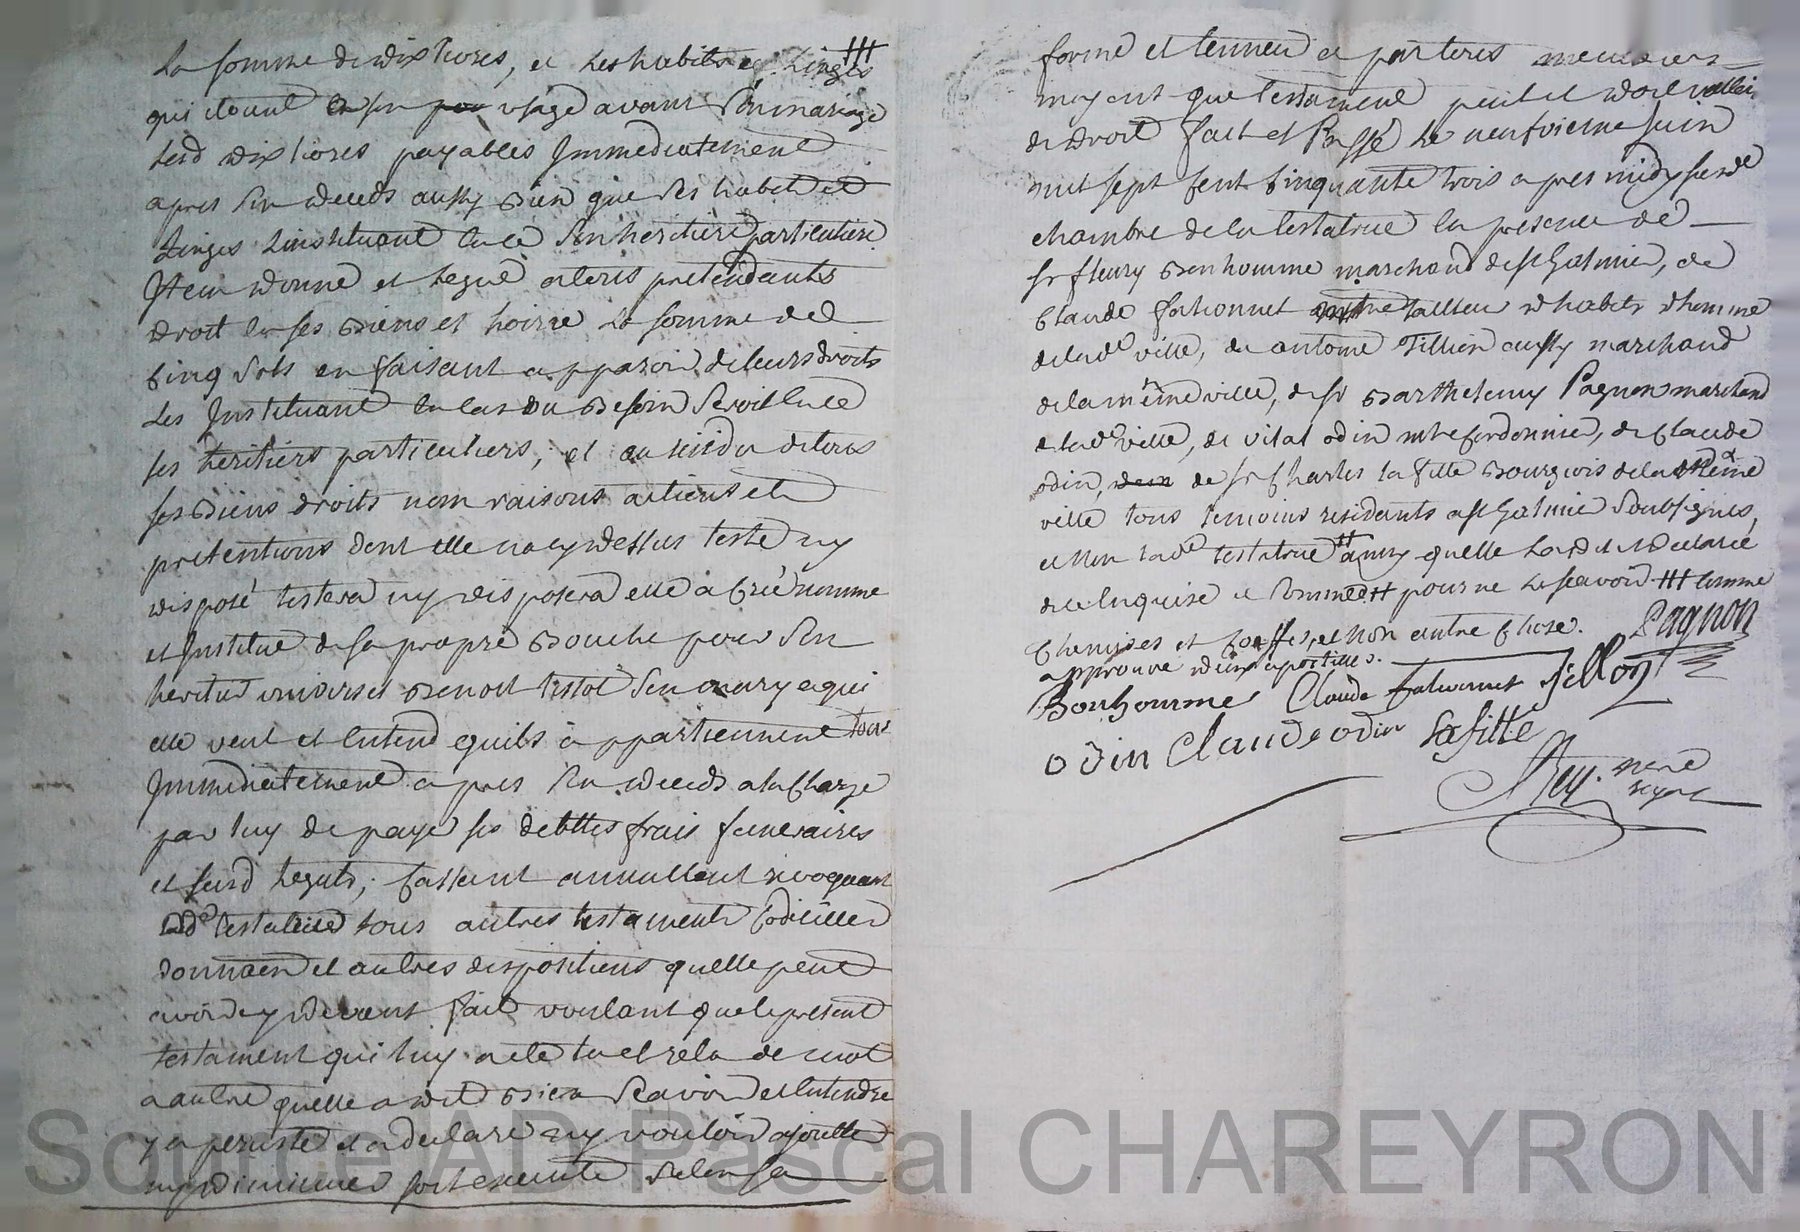 la somme de dix livres, et les habits et linges ╫
qui etoient en son usage avant son mariage
lesd dix livres payables Immediatement
apres son deceds aussy bien que ses habit et
Linges Linstituant en ce son heritiere particuliere
Item donne et legue a tous pretendants
droit en ses biens et hoirie la somme de
cinq sols en faisant apparoir de leurs droits
Les Instituant en cas du besoin seroit en ce
ses heritiers particuliers, et au residu de tous
ses biens droits nom raisons actions et
pretentions dont elle na cy dessus testé ny
disposé testera ny disposera elle a créé nomme
et Institue de sa propre bouche pour son
heritier universel benoit testot son mary a qui
elle veut et entend quils appartiennent tous
Immediatement apres son deceds a la charge
par luy de payer ses debttes frais funeraires
et susd legats, cassant annullant revoquant
lad^e testatrice tous autres testaments codicilles
donnaon et autres dispositions quelle peut
avoir cy devant fait voulant que le present
testament qui luy a ete lu et relu de mot
a autre quelle a dit bien scavoir et entendre
y a persisté et a declaré ny vouloir ajoutter
ny diminuer sort execute selon sa
forme et teneur a par tous
moyens que testament peut et doit valloir
de droit fait et Passé le neufvieme Juin
mil sept cent cinquante trois apres midy
chambre de la testatrice en presence de
sr fleury bonhomme marchand de st Galmier, de
Claude tailleur dhabits dhomme
de lad^e ville, de antoine Tillion aussy marchand
de la même ville, de sr barthelemy Pagnon marchand
de lad^e ville, de vital odin mtre cordonnier, de Claude
odin, de sr Charles la fitte bourgeois de la même
ville tous temoins residants a st Galmier soubsignes,
et non lad^e testatrice quelle a declaré
de ce enquise et sommée pour ne le scavoir ╫ comme
Chemises et Coeffes, et non autre chose. Pagnon
approuvé deux apostilles.
Bonhomme Claude Tillion
odin Claude odin Lafitte
Rey. nore
royal
Source AD Pascal CHAREYRON